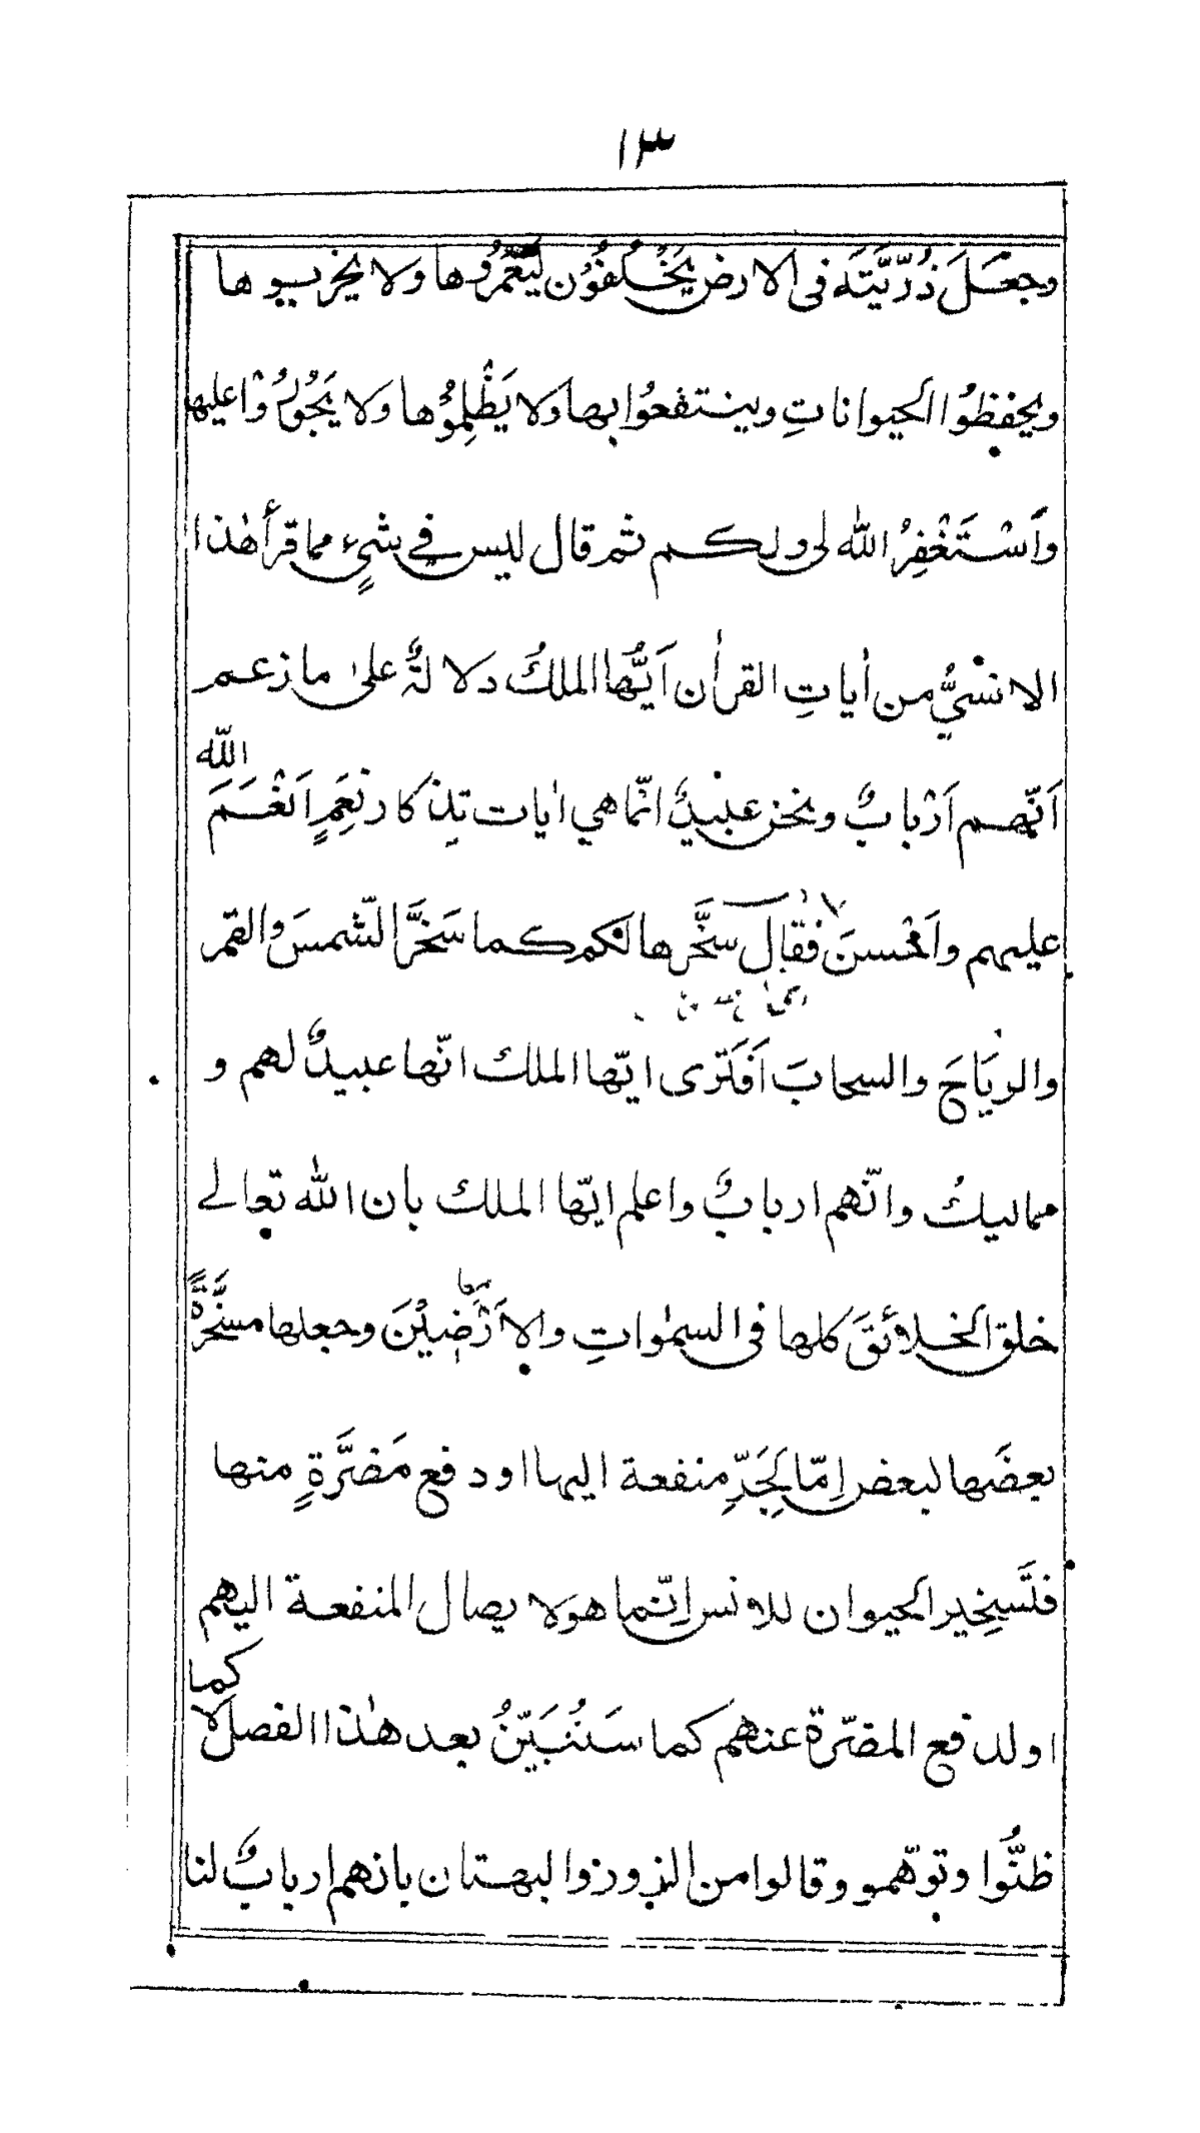 ١٣
وجعَلَ ذُرّيَّتَه فى الارض يَخْلُفُوْن لِيَعْمُرُوها ولا يخربوها
ويحفظُوا الحيواناتِ وينتفعُوا بها ولا يَظْلِمُوُها ولا يَجُوْرُوْا عليها
واَسْتَغْفِرُ الله لى ولكم ثم قال ليس في شيءٍ مما قرأ هٰذا
الانسْيُّ من اٰياتِ القراٰن اَيُّها الملكُ دلالةٌ علىٰ ما زعم
اَنّهم اَرْبابٌ ونحن عبْيدٌ انّما هي اٰيات تِذكار نِعَمٍ اَنْعَمَ الله
عليهم واَحْسنَ فقَالَ سخَّرها لكم كما سَخَّرَ الشّمسَ والقمر
والريَاحَ والسحابَ اَفَتَرى ايّها الملك انّها عبيدٌ لهم و
مماليكُ وانّهم اربابٌ واعلم ايّها الملك بان الله تعالے
خلق الخلائقَ كلها فى السمٰواتِ والاَرَضِيْنَ وجعلها مسخَّرَةً
بعضَها لبعض اِمّا لِجَرِّ منفعة اليها او دفع مَضرَّةٍ منها
فتَسخِير الحيوان للانس اِنّما هو لايصال المنفعة اليهم
او لدفع المضرّة عنهم كما سَنُبَيّنُ بعد هٰذا الفصل لا كما
ظنُّوا وتوهّمو وقالوا من الزور والبهتان بانهم اربابٌ لنا